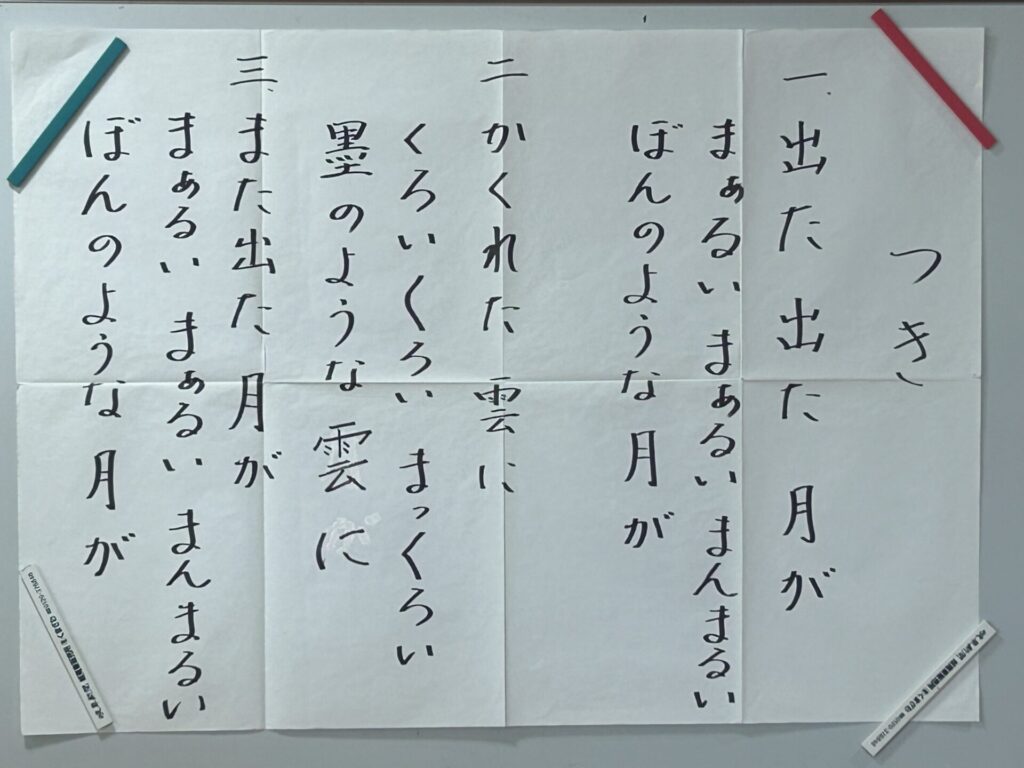 つき
一、出た出た 月が
まぁるい まぁるい まんまるい
ぼんのような 月が
二 かくれた 雲に
くろい くろい まっくろい
墨のような 雲に
三、また出た 月が
まぁるい まぁるい まんまるい
ぼんのような 月が